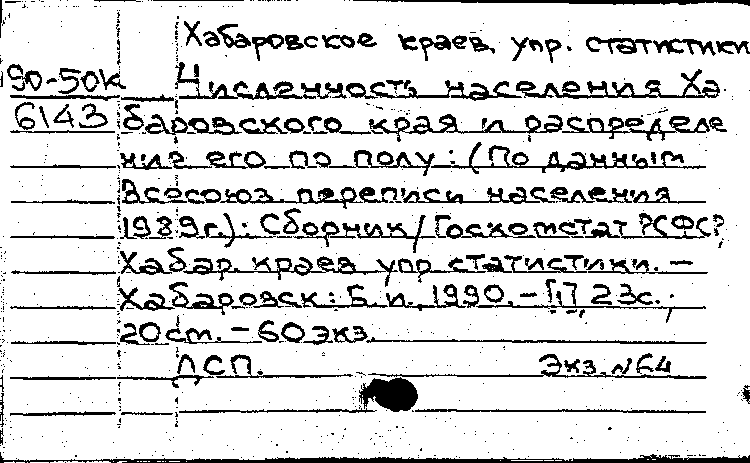 Хабаровское краев. упр. статистики
90-50к Численность населения Ха
6143 баровского края и распределе
ние его по полу: (По данным
Всесоюз. переписи населения
1989г.): Сборник/Госкомстат РСФСР,
Хабар. краев упр статистики. –
Хабаровск: Б. и., 1990. – [1], 23с.;
20см. – 60экз.
ДСП. Экз. №64